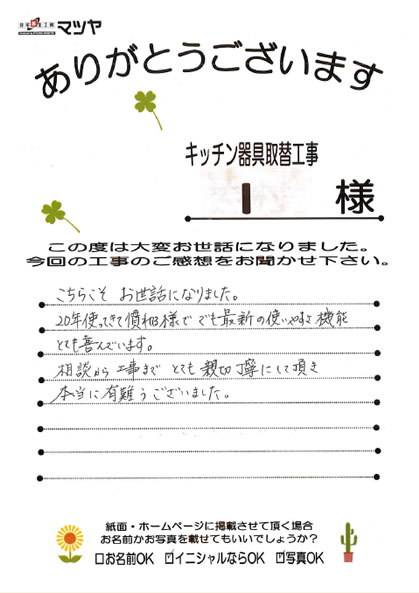 マツヤ
ありがとうございます
キッチン器具取替工事
I 様
この度は大変お世話になりました。
今回の工事のご感想をお聞かせ下さい。
こちらこそ お世話になりました。
20年使ってきて慣れる様で でも最新の使いやすさ機能
とても喜んでいます。
相談から工事まで とても親切丁寧にして頂き
本当に有難うございました。
紙面・ホームページに掲載させて頂く場合
お名前かお写真を載せてもいいでしょうか?
□お名前OK ☑イニシャルならOK ☑写真OK